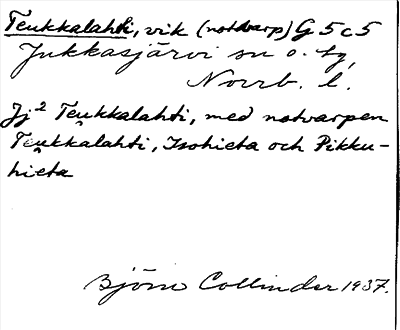 Teukkalahti, vik (notvarp) G 5 c 5
Jukkasjärvi sn o. tg,
Norrb. l.
Jj² Teukkalahti, med notvarpen
Teukkalahti, Isohieta och Pikku-
hieta
Björn Collinder 1937.